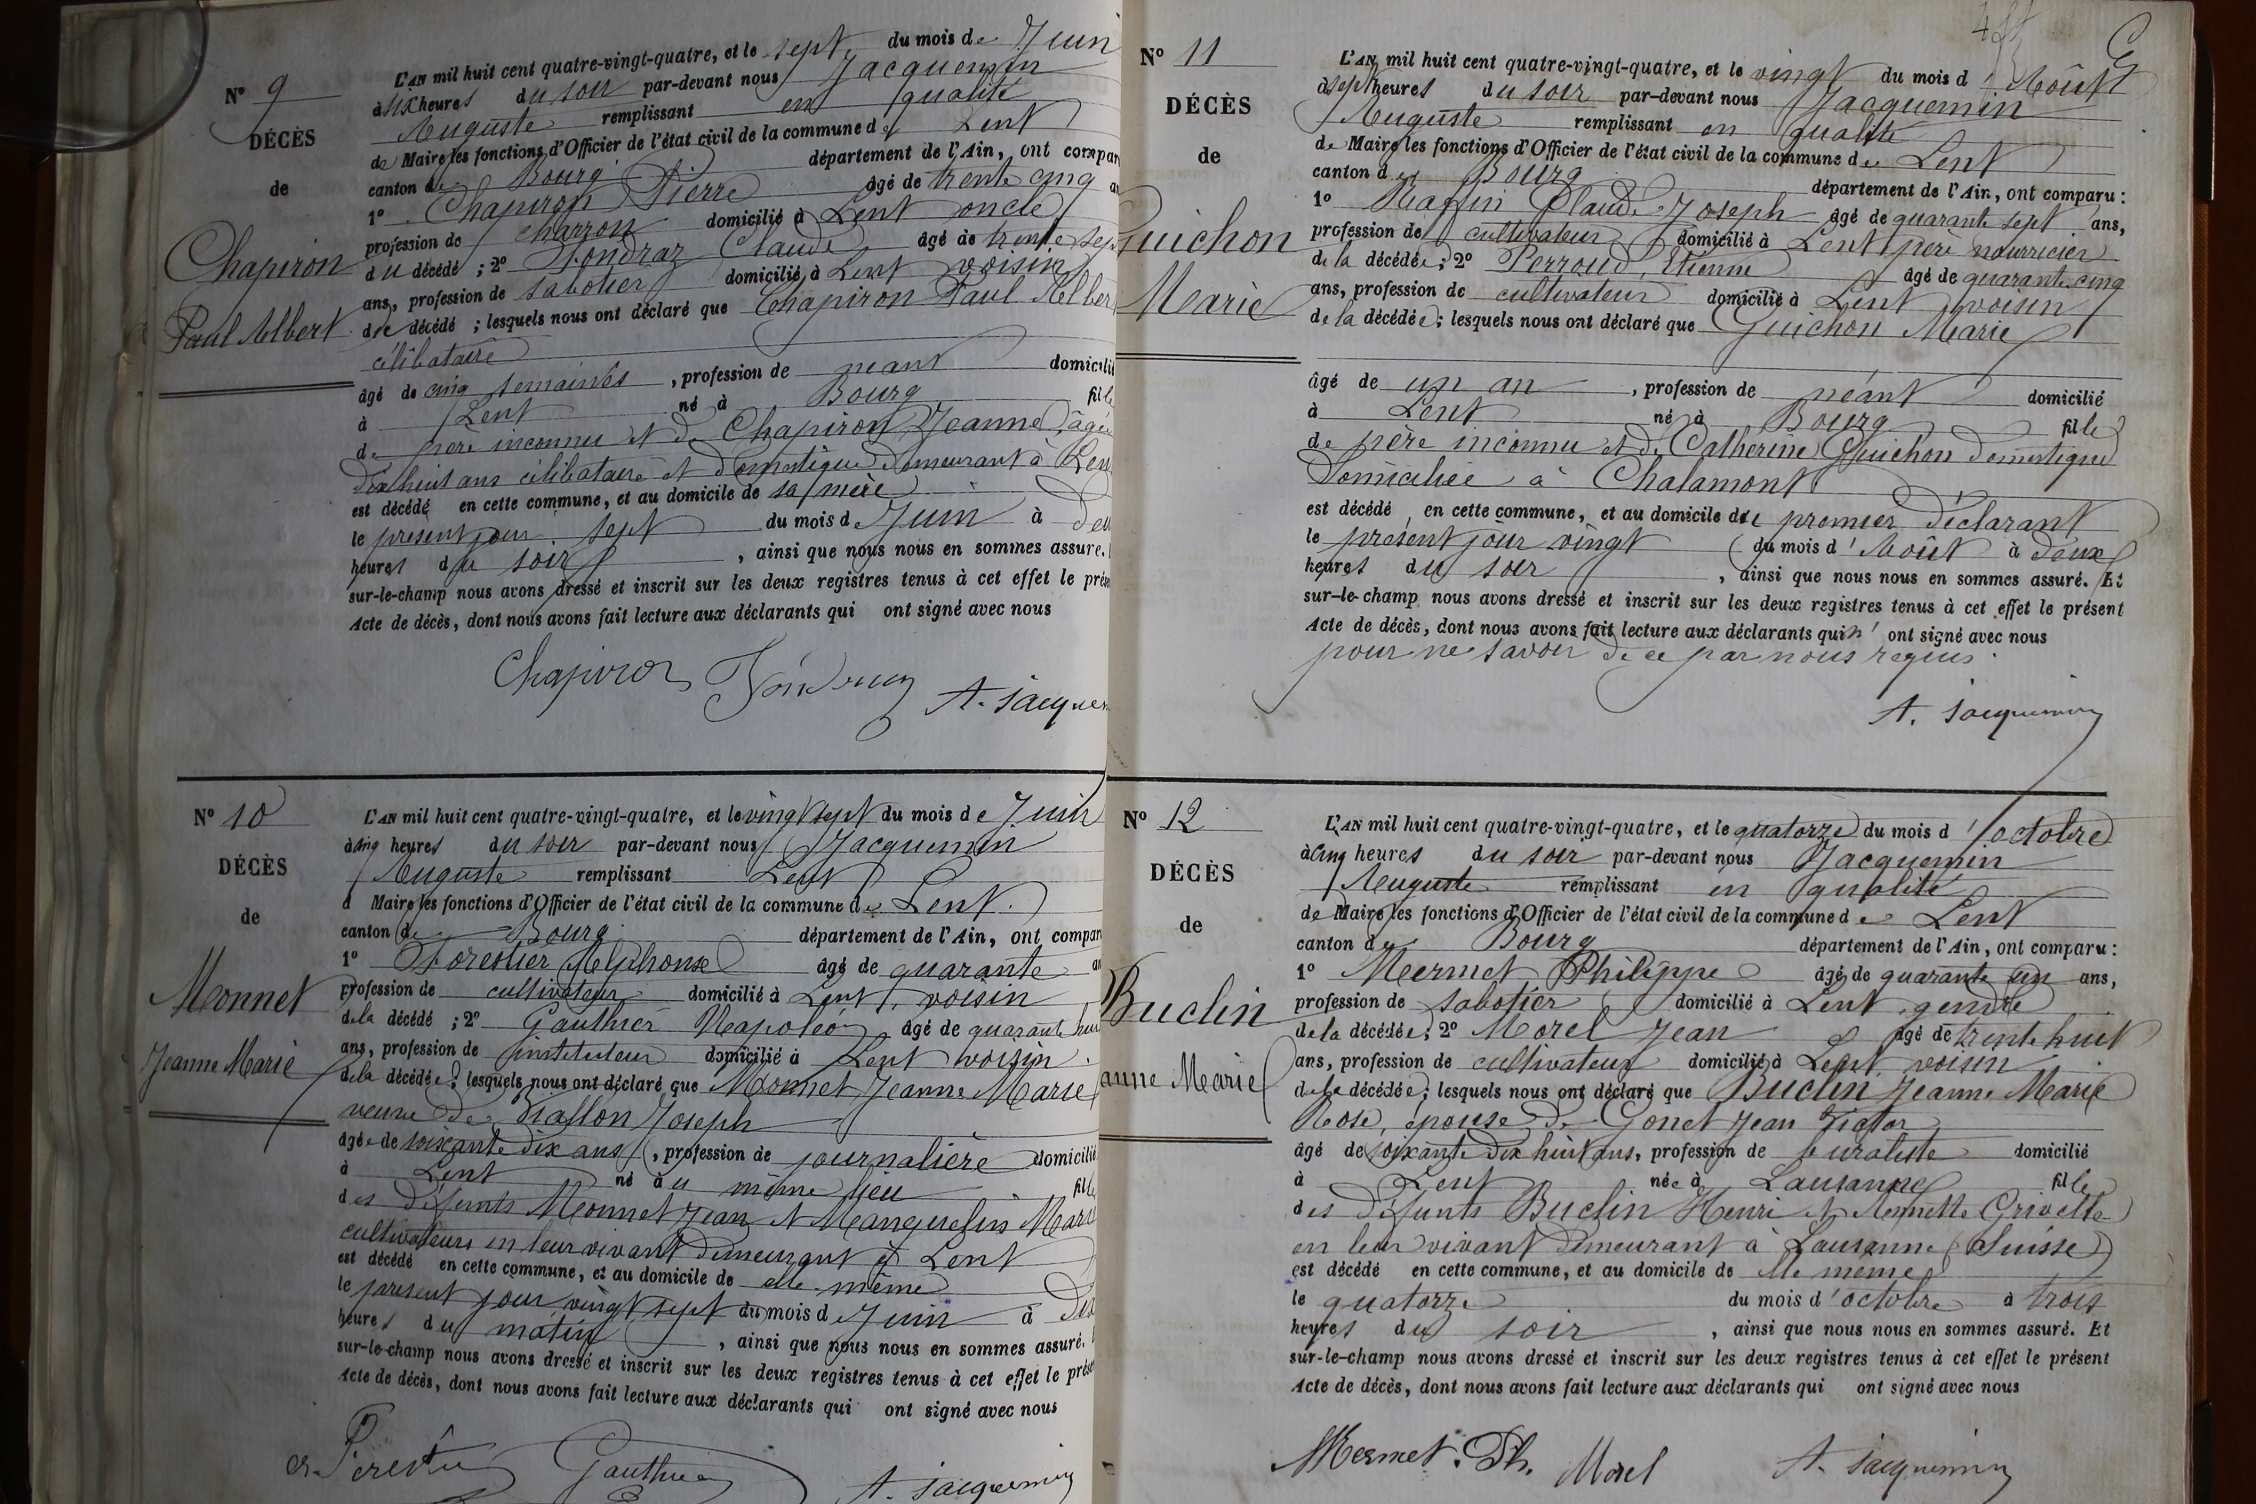 N° 9
DÉCÈS
de
Chapiron
Paul Albert
L'AN mil huit cent quatre-vingt-quatre, et le sept du mois de Juin
à six heures du soir par-devant nous Jacquemin
Auguste remplissant en qualité
de Maire les fonctions d'Officier de l'état civil de la commune de Lent
canton de Bourg département de l'Ain, ont compar
1° Chapiron Pierre âgé de trente cinq
profession de charron domicilié à Lent oncle
du décédé ; 2° Fondraz Claude âgé de trente sep
ans, profession de sabotier domicilié à Lent voisin
du décédé ; lesquels nous ont déclaré que Chapiron Paul Alber
célibataire
âgé de cinq semaines, profession de néant domicilié
à Lent né à Bourg fils
de père inconnu et de Chapiron Jeanne, âgée
dix huit ans célibataire et domestique demeurant à Len
est décédé en cette commune, et au domicile de sa mère
le présent jour sept du mois de Juin à deu
heures du soir, ainsi que nous nous en sommes assuré.
sur-le-champ nous avons dressé et inscrit sur les deux registres tenus à cet effet le prése
Acte de décès, dont nous avons fait lecture aux déclarants qui ont signé avec nous
Chapiron A. Jacquem
N° 10
DÉCÈS
de
Monnet
Jeanne Marie
L'AN mil huit cent quatre-vingt-quatre, et le vingt sept du mois de Juin
à cinq heures du soir par-devant nous Jacquemin
Auguste remplissant Lent
d Maire les fonctions d'Officier de l'état civil de la commune de Lent.
canton de Bourg département de l'Ain, ont compar
1° Forestier Alphonse âgé de quarante an
profession de cultivateur domicilié à Lent, voisin
de la décédé ; 2° Gauthier Napoléon âgé de quarante hui
ans, profession de instituteur domicilié à Lent voisin.
de la décédée ; lesquels nous ont déclaré que Monnet Jeanne Marie
veuve de Joseph
âgée de soixante dix ans, profession de journalière domicilié
à Lent né au même lieu fille
des défunts Monnet Jean et Manguelin Marie
cultivateurs en leur vivant demeurant à Lent
est décédé en cette commune, et au domicile de elle même
le présent jour vingt sept du mois de Juin à dix
heures du matin, ainsi que nous nous en sommes assuré.
sur-le-champ nous avons dressé et inscrit sur les deux registres tenus à cet effet le prése
Acte de décès, dont nous avons fait lecture aux déclarants qui ont signé avec nous
Gauthier A. Jacquemin
N° 11
DÉCÈS
de
Guichon
Marie
L'AN mil huit cent quatre-vingt-quatre, et le vingt du mois d'Août
à sept heures du soir par-devant nous Jacquemin
Auguste remplissant en qualité
de Maire les fonctions d'Officier de l'état civil de la commune de Lent
canton de Bourg département de l'Ain, ont comparu :
1° Raffin Claude Joseph âgé de quarante sept ans,
profession de cultivateur domicilié à Lent père nourricier
de la décédée ; 2° Perroud, Etienne âgé de quarante cinq
ans, profession de cultivateur domicilié à Lent voisin
de la décédée ; lesquels nous ont déclaré que Guichon Marie
âgé de un an, profession de néant domicilié
à Lent né à Bourg fille
de père inconnu et de Catherine Guichon domestique
domiciliée à Chalamont
est décédé en cette commune, et au domicile du premier déclarant
le présent jour vingt du mois d'Août à deux
heures du soir, ainsi que nous nous en sommes assuré. Et
sur-le-champ nous avons dressé et inscrit sur les deux registres tenus à cet effet le présent
Acte de décès, dont nous avons fait lecture aux déclarants qui n'ont signé avec nous
pour ne savoir de ce par nous requis.
A. Jacquemin
N° 12
DÉCÈS
de
Buclin
anne Marie
L'AN mil huit cent quatre-vingt-quatre, et le quatorze du mois d'octobre
à cinq heures du soir par-devant nous Jacquemin
Auguste remplissant en qualité
de Maire les fonctions d'Officier de l'état civil de la commune de Lent
canton de Bourg département de l'Ain, ont comparu :
1° Mermet Philippe âgé de quarante un ans,
profession de sabotier domicilié à Lent, gendre
de la décédée ; 2° Morel Jean âgé de trente huit
ans, profession de cultivateur domicilié à Lent, voisin
de la décédée ; lesquels nous ont déclaré que Buclin Jeanne Marie
Rose, épouse de Gonet Jean
âgé de soixante dix huit ans, profession de buraliste domicilié
à Lent née à Lausanne fille
des défunts Buclin Henri et Annette Crivelle
en leur vivant demeurant à Lausanne (Suisse)
est décédé en cette commune, et au domicile de elle même
le quatorze du mois d'octobre à trois
heures du soir, ainsi que nous nous en sommes assuré. Et
sur-le-champ nous avons dressé et inscrit sur les deux registres tenus à cet effet le présent
Acte de décès, dont nous avons fait lecture aux déclarants qui ont signé avec nous
Mermet. Ph. Morel A. Jacquemin